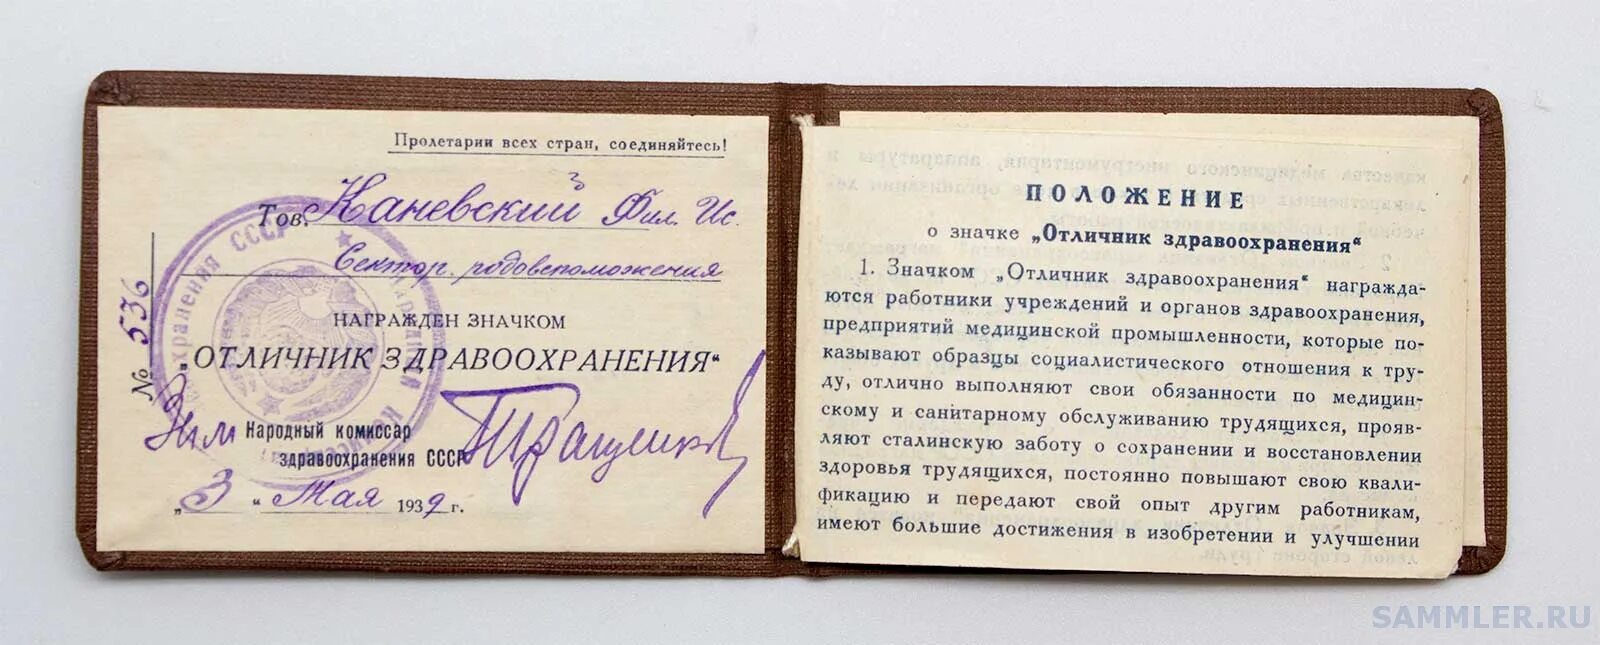 Пролетарии всех стран, соединяйтесь!
Тов. Каневский Фил. Ис.
Сектор. родовспоможения
НАГРАЖДЕН ЗНАЧКОМ
„ОТЛИЧНИК ЗДРАВООХРАНЕНИЯ“
№ 536
Народный комиссар
здравоохранения СССР
„3“ Мая 1939 г.
ПОЛОЖЕНИЕ
о значке „Отличник здравоохранения“
1. Значком „Отличник здравоохранения“ награжда-
ются работники учреждений и органов здравоохранения,
предприятий медицинской промышленности, которые по-
казывают образцы социалистического отношения к тру-
ду, отлично выполняют свои обязанности по медицин-
скому и санитарному обслуживанию трудящихся, прояв-
ляют сталинскую заботу о сохранении и восстановлении
здоровья трудящихся, постоянно повышают свою квали-
фикацию и передают свой опыт другим работникам,
имеют большие достижения в изобретении и улучшении
SAMMLER.RU